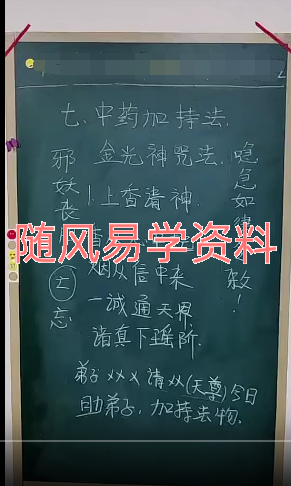 七、中药加持法.
金光神咒法.
1.上香清神.
随风易学资料
烟从信中来
一诚通天界
诸真下瑶阶.
弟子×××请××(天尊)今日
助弟子,加持法物.
邪妖丧
亡
忘
急如律
敕!